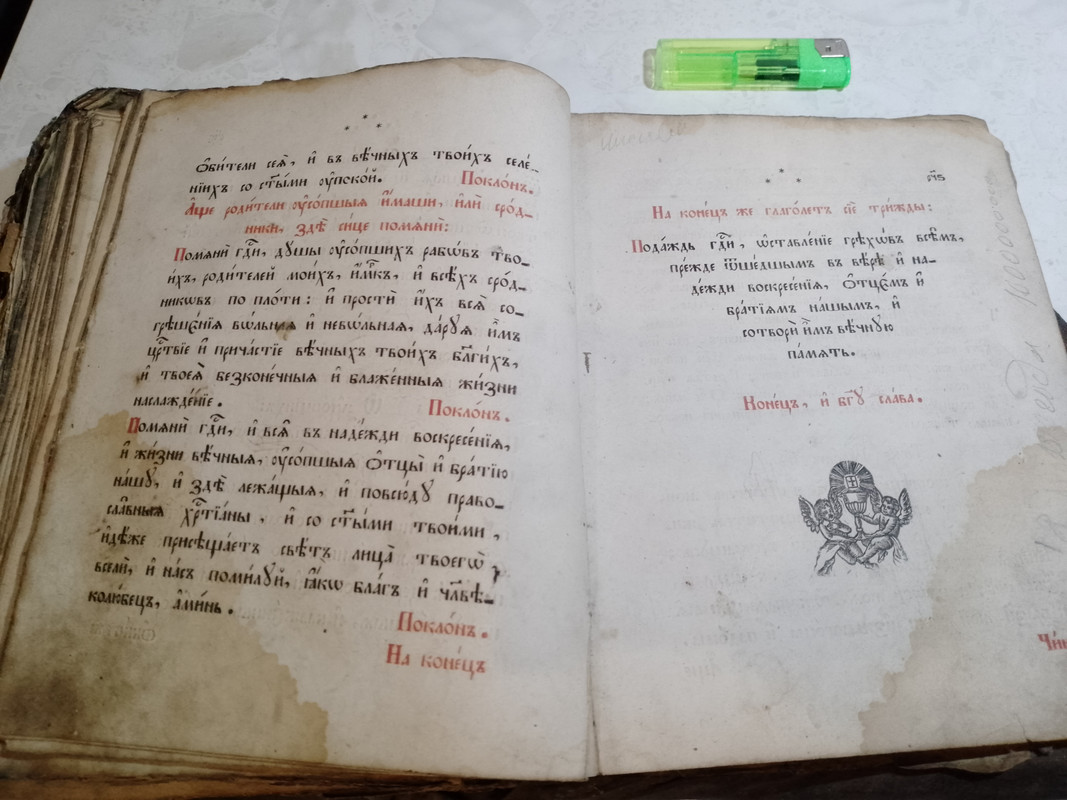 ѻ҆би́тели сеѧ̀, и҆ въ вѣ́чныхъ твои́хъ селе́-
нїихъ со ст҃ы́ми ᲂу҆поко́й. Покло́нъ.
А҆́ще роди́тели ᲂу҆со́пшыѧ и҆́маши, и҆лѝ сро́д-
ники, здѣ̀ си́це помѧнѝ:
Помѧнѝ гдⷭ҇и, дꙋ́шы ᲂу҆со́пшихъ ра̑бѡвъ тво-
и́хъ, роди́телей мои́хъ, и҆́м̑къ, и҆ всѣ́хъ сро́д-
никѡвъ по пло́ти: и҆ простѝ и҆̀хъ всѧ̑ со-
грѣшє́нїѧ вѡ́льнаѧ и҆ невѡ́льнаѧ, да́рꙋѧ и҆̀мъ
црⷭ҇твїе и҆ прича́стїе вѣ́чныхъ твои́хъ бл҃ги́хъ,
и҆ твоеѧ̀ безконе́чныѧ и҆ блаже́нныѧ жи́зни
наслажде́нїе. Покло́нъ.
Помѧнѝ гдⷭ҇и, и҆ всѧ̑ въ наде́жди воскресе́нїѧ,
и҆ жи́зни вѣ́чныѧ, ᲂу҆со́пшыѧ ѻ҆тцы̀ и҆ бра́тїю
на́шꙋ, и҆ здѣ̀ лежа́щыѧ, и҆ повсю́дꙋ право-
сла́вныѧ хрⷭ҇тїа́ны, и҆ со ст҃ы́ми твои́ми,
и҆дѣ́же присѣща́етъ свѣ́тъ лица̀ твоегѡ̀
вселѝ, и҆ на́съ поми́лꙋй, ꙗ҆́кѡ бла́гъ и҆ чл҃вѣ-
колю́бецъ, а҆ми́нь.
Покло́нъ.
На коне́цъ
На коне́цъ же глаго́летъ сїѐ три́жды:
Пода́ждь гдⷭ҇и, ѡ҆ставле́нїе грѣхѡ́въ всѣ̑мъ,
пре́жде ѿше́дшымъ въ вѣ́рѣ и҆ на-
де́жди воскресе́нїѧ, ѻ҆тцє́мъ и҆
бра́тїѧмъ на́шымъ, и҆
сотворѝ и҆̀мъ вѣ́чнꙋю
па́мѧть.
Коне́цъ, и҆ бг҃ꙋ сла́ва.